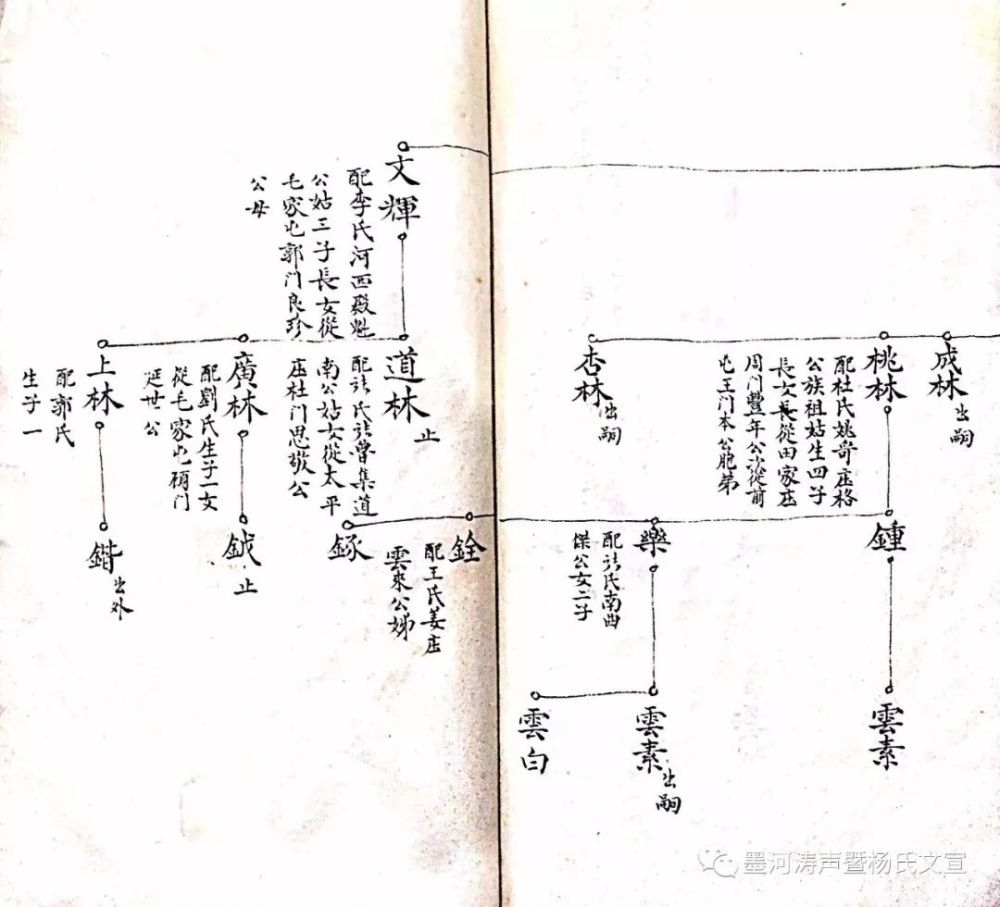 成林
出嗣
桃林
配杜氏姚哥庄格
公族祖姑生四子
長女長從田家庄
周門豐年公次從前
屯王門本公胞弟
杏林
出嗣
鍾
樂
配於氏南曲
傑公女二子
雲素
雲素
出嗣
雲白
文輝
配李氏河西殿魁
公姑三子長女從
毛家屯郭門良珍
公母
道林
止
配於氏於曾集道
南公姑女從太平
庄杜門思敬公
廣林
配劉氏生子一女
從毛家屯門
延世公
上林
配郭氏
生子一
銓
配王氏姜庄
雲來公姊
鋮
止
鍇
出外
墨河涛声暨杨氏文宣